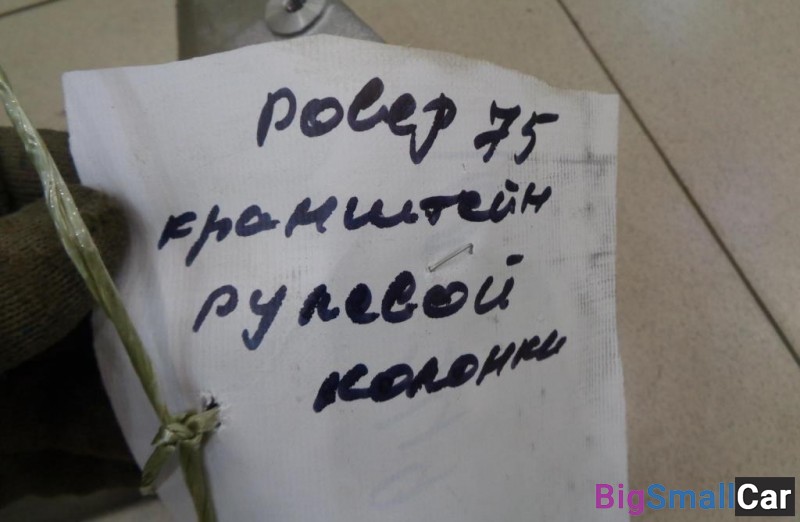 Ровер 75
кранштейн
рулевой
колонки
BigSmallCar